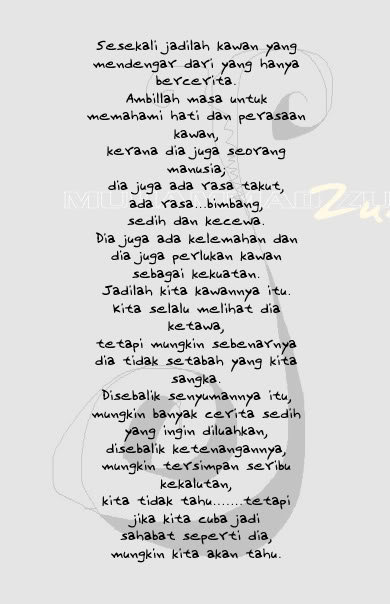 Sesekali jadilah kawan yang
mendengar dari yang hanya
bercerita.
Ambillah masa untuk
memahami hati dan perasaan
kawan,
kerana dia juga seorang
manusia,
dia juga ada rasa takut,
ada rasa...bimbang,
sedih dan kecewa.
Dia juga ada kelemahan dan
dia juga perlukan kawan
sebagai kekuatan.
Jadilah kita kawannya itu.
Kita selalu melihat dia
ketawa,
tetapi mungkin sebenarnya
dia tidak setabah yang kita
sangka.
Disebalik senyumannya itu,
mungkin banyak cerita sedih
yang ingin diluahkan,
disebalik ketenangannya,
mungkin tersimpan seribu
kekalutan,
kita tidak tahu.......tetapi
jika kita cuba jadi
sahabat seperti dia,
mungkin kita akan tahu.